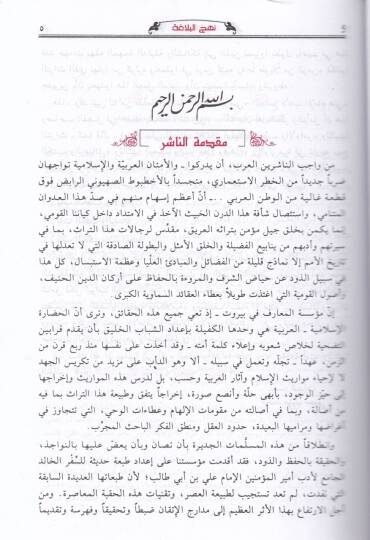 نهج البلاغة
٥
بسم الله الرحمن الرحيم
مقدمة الناشر
من واجب الناشرين العرب، أن يدركوا ـ والأمتان العربيّة والإسلامية تواجهان
ضرباً جديداً من الخطر الاستعماري، متجسداً بالأخطبوط الصهيوني الرابض فوق
قطعة غالية من الوطن العربي .. ـ أنّ أعظم إسهام منهم في صدّ هذا العدوان
المتنامي، واستئصال شأفة هذا الدرن الخبيث الآخذ في الامتداد داخل كياننا القومي،
إنما يكمن بخلق جيل مؤمن بتراثه العريق، مقدّس لرجالات هذا التراث، بما في
سيرتهم وأدبهم من ينابيع الفضيلة والخلق الأمثل والبطولة الصادقة التي لا تعدلها في
تاريخ الأمم إلا نماذج قليلة من الفضائل والمبادئ العليا وعظمة الاستبسال، كل هذا
في سبيل الذود عن حياض الشرف والمروءة بالحفاظ على أركان الدين الحنيف،
وأصول القومية التي اغتذت طويلاً بعطاء العقائد السماوية الكبرى.
إنّ مؤسسة المعارف في بيروت ـ إذ تعي جميع هذه الحقائق، وترى أنّ الحضارة
الإسلامية ـ العربية هي وحدها الكفيلة بإعداد الشباب الخليق بأن يقدم قرابين
التضحية لخلاص شعوبه وإعلاء كلمة أمته ـ وقد أخذت على نفسها منذ ربع قرن من
الزمن، عهداً ـ تجلّه وتعمل في سبيله ـ ألا وهو الدأب على مزيد من تكريس الجهد
لا لإحياء مواريث الإسلام وآثار العربية وحسب، بل لدرس هذه المواريث وإخراجها
إلى حيّز الوجود، بأبهى حلّة وأنصع صورة، إخراجاً يتفق وطبيعة هذا التراث بما فيه
من أصالة، وبما في أصالته من مقومات الإلهام وعطاءات الوحي، التي تتجاوز في
أغراضها ومراميها البعيدة، حدود العقل ومنطق الفكر الباحث المجرّب.
وانطلاقاً من هذه المسلّمات الجديرة بأن تصان وبأن يعضّ عليها بالنواجذ،
والحقيقة بالحفظ والذود، فقد أقدمت مؤسستنا على إعداد طبعة حديثة للسِّفر الخالد
الجامع لأدب أمير المؤمنين الإمام علي بن أبي طالب؛ لأن طبعاتها العديدة السابقة
التي نفدت، لم تعد تستجيب لطبيعة العصر، وتقنيات هذه الحقبة المعاصرة. ومن
أجل الارتفاع بهذا الأثر العظيم إلى مدارج الإتقان ضبطاً وتحقيقاً وفهرسة وتقديماً